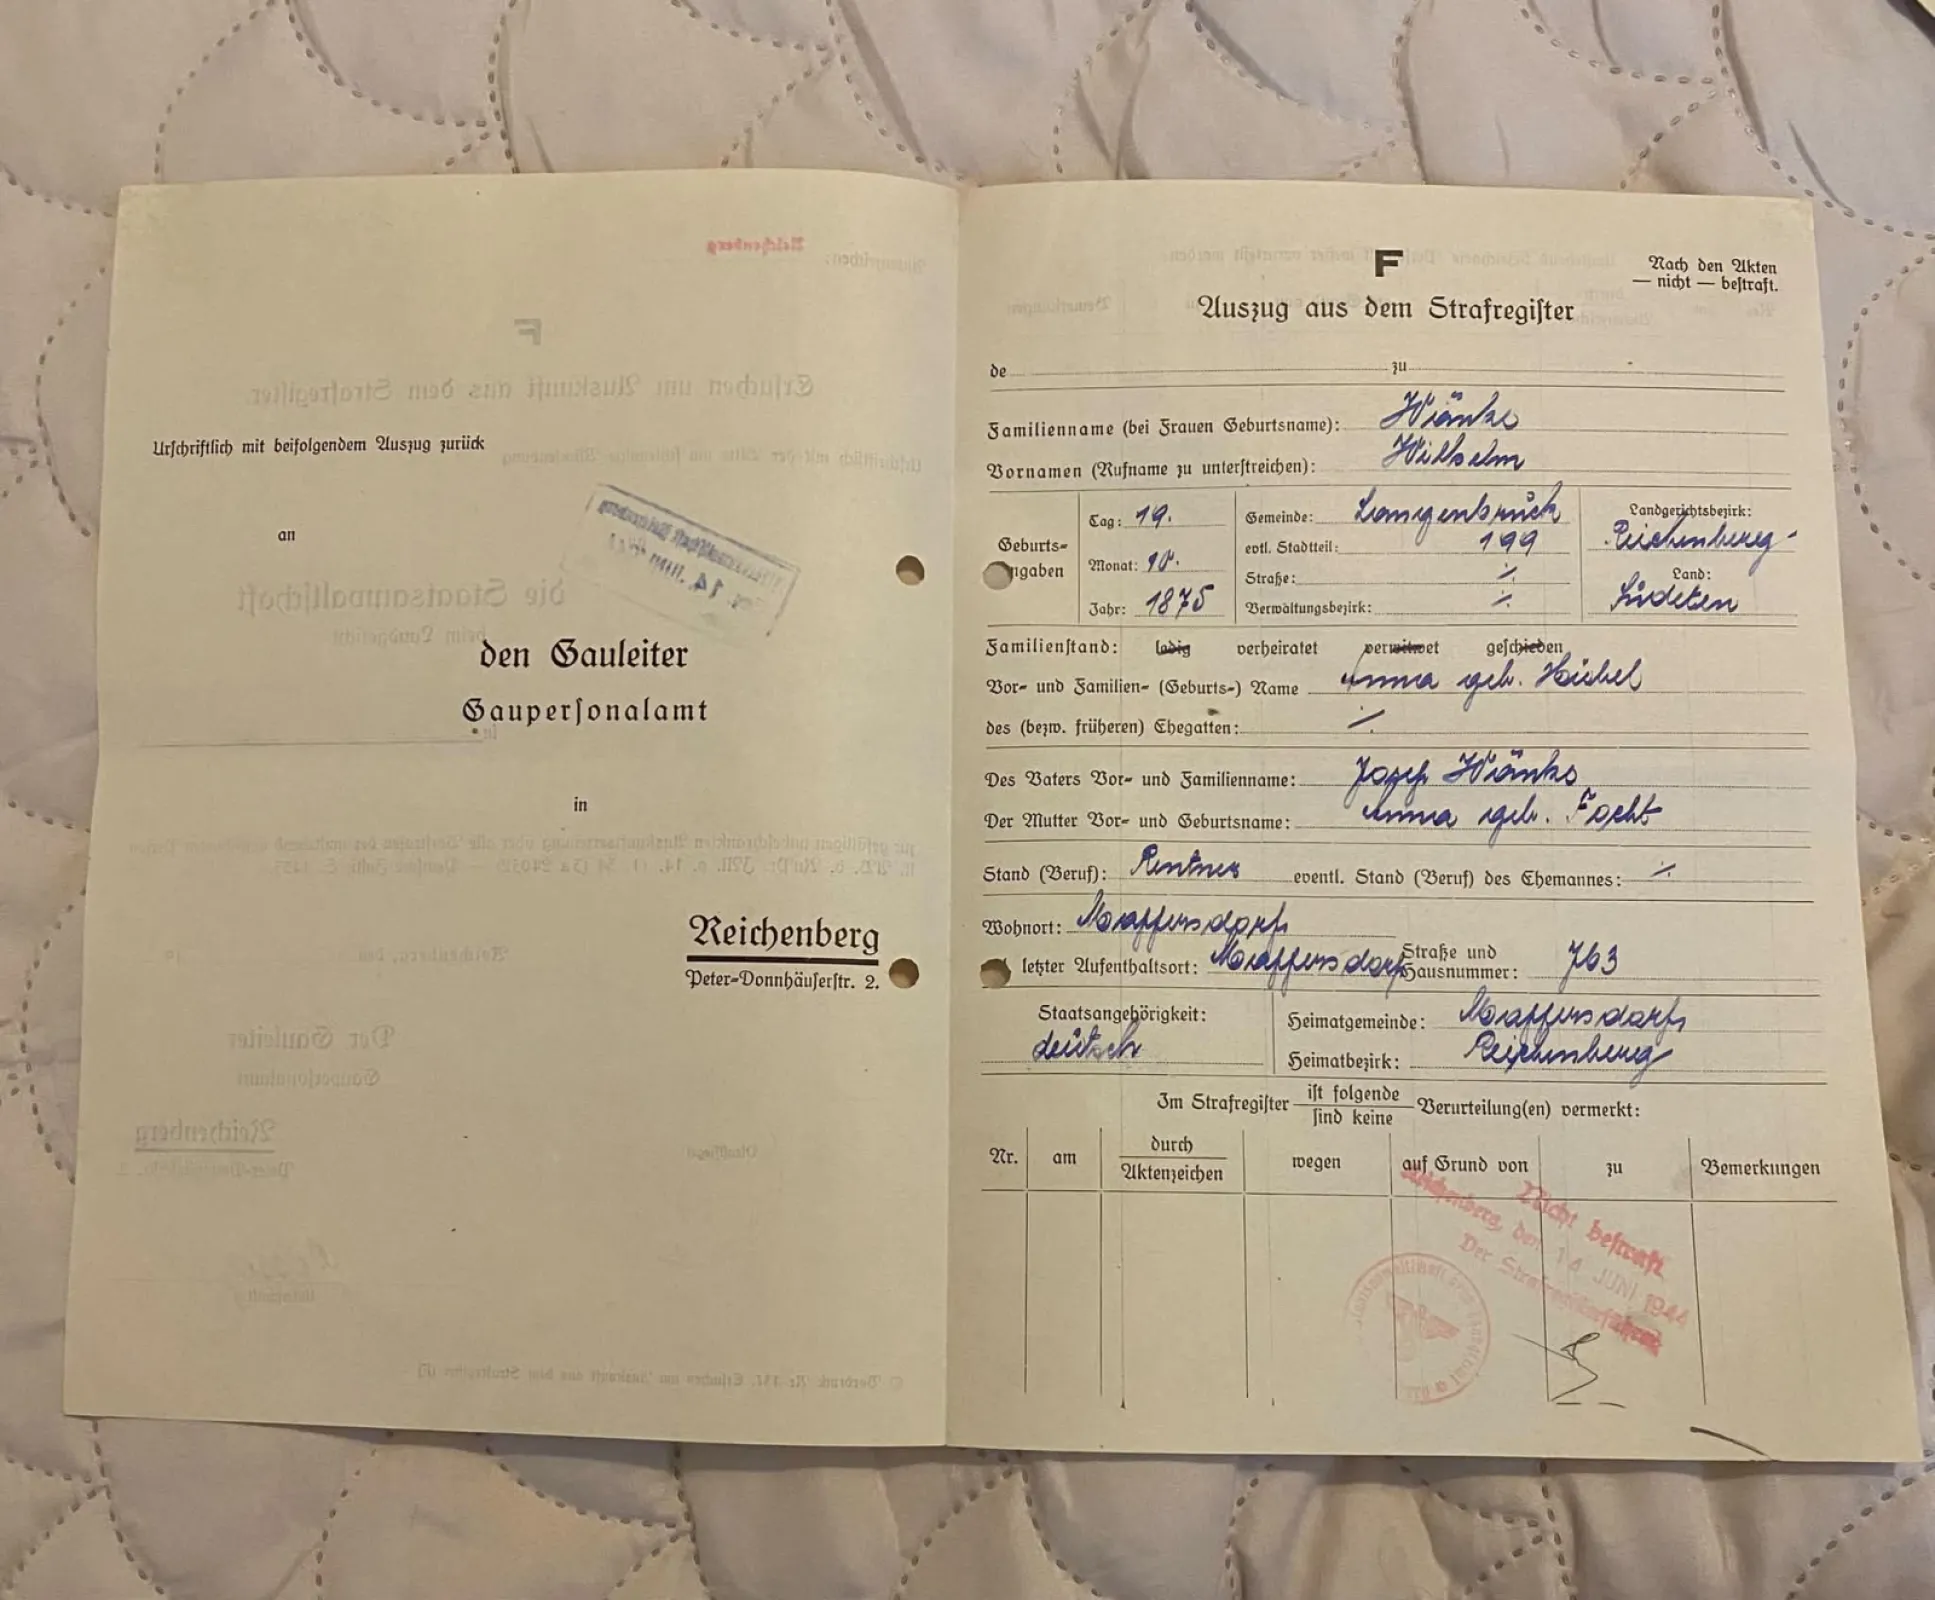 Urschriftlich mit beifolgendem Auszug zurück
an
den Gauleiter
Gaupersonalamt
in
Reichenberg
Peter-Donnhäuserstr. 2.
F
Nach den Akten
— nicht — bestraft.
Auszug aus dem Strafregister
de zu
Familienname (bei Frauen Geburtsname): Wiänke
Vornamen (Rufname zu unterstreichen): Wilhelm
Geburts-
angaben
Tag: 19.
Monat: 10.
Jahr: 1875
Gemeinde: Langenbruck
evtl. Stadtteil: 199
Straße: ·/.
Verwaltungsbezirk: ·/.
Landgerichtsbezirk:
Reichenberg
Land:
Sudeten
Familienstand: ledig verheiratet verwitwet geschieden
Vor- und Familien- (Geburts-) Name Anna geb. Hübel
des (bezw. früheren) Ehegatten: ·/.
Des Vaters Vor- und Familienname: Josef Wiänke
Der Mutter Vor- und Geburtsname: Anna geb.
Stand (Beruf): Rentner eventl. Stand (Beruf) des Ehemannes: ·/.
Wohnort: Maffersdorf
letzter Aufenthaltsort: Maffersdorf Straße und Hausnummer: 763
Staatsangehörigkeit:
deutsch
Heimatgemeinde: Maffersdorf
Heimatbezirk: Reichenberg
Im Strafregister ist folgende
sind keine Verurteilung(en) vermerkt:
Nr. am durch
Aktenzeichen wegen auf Grund von zu Bemerkungen
Nicht bestraft
Reichenberg, den 14 JUNI 1944
Der Strafregisterführer